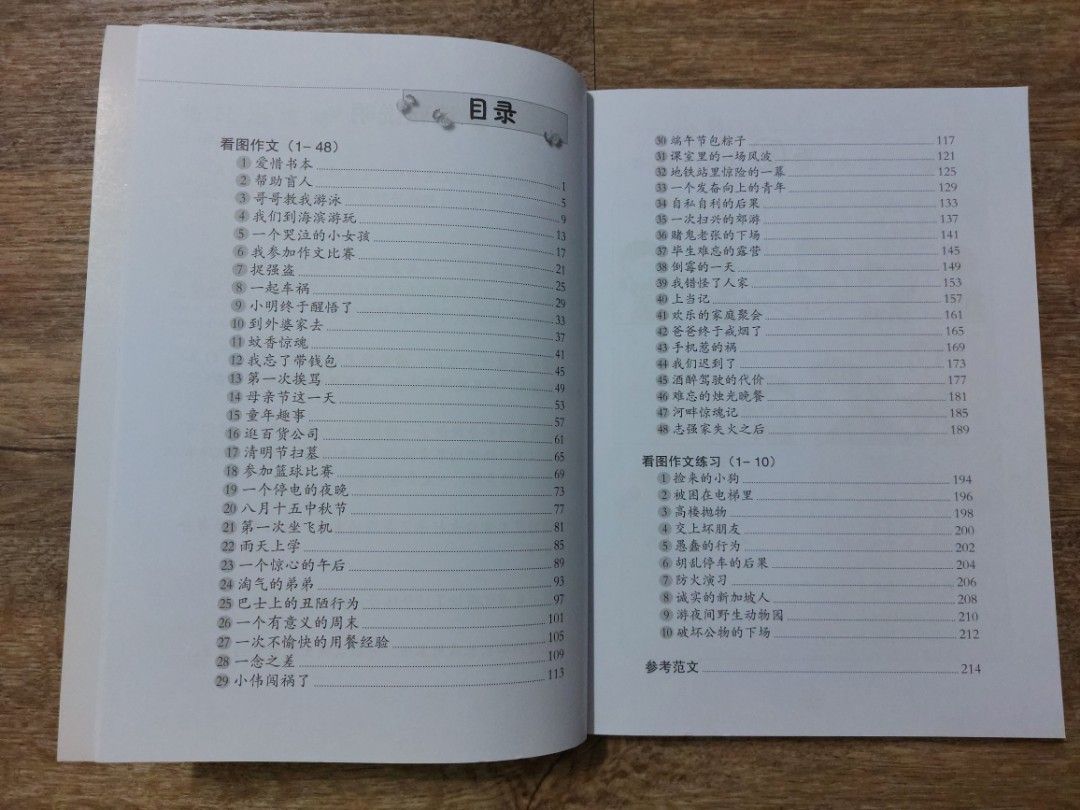 目录
看图作文（1-48）
1 爱惜书本 1
2 帮助盲人 5
3 哥哥教我游泳 9
4 我们到海滨游玩 13
5 一个哭泣的小女孩 17
6 我参加作文比赛 21
7 捉强盗 25
8 一起车祸 29
9 小明终于醒悟了 33
10 到外婆家去 37
11 蚊香惊魂 41
12 我忘了带钱包 45
13 第一次挨骂 49
14 母亲节这一天 53
15 童年趣事 57
16 逛百货公司 61
17 清明节扫墓 65
18 参加篮球比赛 69
19 一个停电的夜晚 73
20 八月十五中秋节 77
21 第一次坐飞机 81
22 雨天上学 85
23 一个惊心的午后 89
24 淘气的弟弟 93
25 巴士上的丑陋行为 97
26 一个有意义的周末 101
27 一次不愉快的用餐经验 105
28 一念之差 109
29 小伟闯祸了 113
30 端午节包粽子 117
31 课室里的一场风波 121
32 地铁站里惊险的一幕 125
33 一个发奋向上的青年 129
34 自私自利的后果 133
35 一次扫兴的郊游 137
36 赌鬼老张的下场 141
37 毕生难忘的露营 145
38 倒霉的一天 149
39 我错怪了人家 153
40 上当记 157
41 欢乐的家庭聚会 161
42 爸爸终于戒烟了 165
43 手机惹的祸 169
44 我们迟到了 173
45 酒醉驾驶的代价 177
46 难忘的烛光晚餐 181
47 河畔惊魂记 185
48 志强家失火之后 189
看图作文练习（1-10）
1 捡来的小狗 194
2 被困在电梯里 196
3 高楼抛物 198
4 交上坏朋友 200
5 愚蠢的行为 202
6 胡乱停车的后果 204
7 防火演习 206
8 诚实的新加坡人 208
9 游夜间野生动物园 210
10 破坏公物的下场 212
参考范文 214